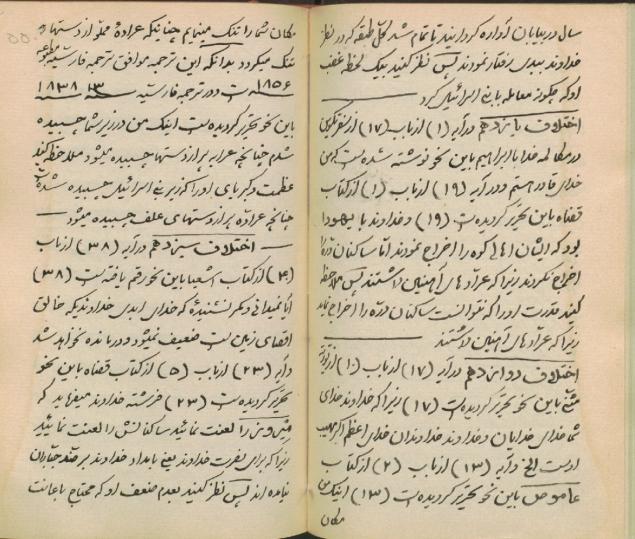 سال در بیابان آواره گردانید تا تمام شد کل طبقه که در نظر
خداوند ببدی رفتار نمودند پس نظر کنید بیک لحظه غضب
او که چگونه معامله با بنی اسرائیل کرد
اختلاف یازدهم در آیه (۱) از باب (۱۷) از سفر تکوین
در مکالمه خدا با ابراهیم باین نحو نوشته شده است که من
خدای قادر هستم و در آیه (۱۹) از باب (۱) از کتاب
قضاه باین تحریر گردیده است (۱۹) و خداوند با یهودا
بود که ایشان اهل کوه را اخراج نمودند اما ساکنان دره را
اخراج نکردند زیرا که عراده های آهنین داشتند پس ملاحظه
کنید قدرت او را که نتوانست ساکنان دره را اخراج نماید
زیرا که عراده های آهنین داشتند
اختلاف دوازدهم در آیه (۱۷) از باب (۱۰) از توریة
مثنی باین نحو تحریر گردیده است (۱۷) زیرا که خداوند خدای
شما خدای خدایان و خداوند خداوندان خدای اعظم اکبر مهیب
اوست الخ و آیه (۱۳) از باب (۲) از کتاب
عاموص باین نحو تحریر گردیده است (۱۳) اینک من
مکان
مکان شما را تنگ مینمایم چنانکه عرادهٔ مملو از دستها
تنگ میگردد بدانکه این ترجمه موافق ترجمه فارسیه مطبوعه
۱۸۵۶ است و در ترجمه فارسیه ۱۸۳۸
باین نحو تحریر گردیده است اینک من در زیر شما چسبیده
شدم چنانچه عرابه پر از دستها چسبیده میشود ملاحظه کنید
عظمت و کبریای او را که زیر بنی اسرائیل چسبیده شده است
چنانچه عراده پر از دستهای علف چسبیده میشود
اختلاف سیزدهم در آیه (۳۸) از باب
(۴۰) از کتاب اشعیا باین نحو رقم یافته است (۳۸)
آیا نمیدانی و مگر نشنیدهٔ که خدای ابدی خداوندیکه خالق
اقصای زمین است ضعیف نمیشود و درمانده نخواهد شد
و آیه (۲۳) از باب (۵) از کتاب قضاه باین نحو
تحریر گردیده است (۲۳) فرشته خداوند میفرماید که
را لعنت نمائید ساکنانش را لعنت نمائید
زیرا که برای نصرت خداوند یعنی بامداد خداوند بر ضد جباران
نیامده اند پس نظر کنید بعدم ضعف او که محتاج باعانت